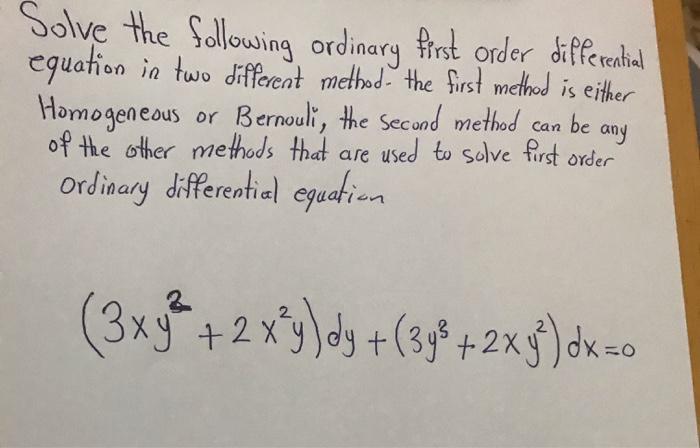 Solve the following ordinary first order differential
equation in two different method- the first method is either
Homogeneous or Bernouli, the second method can be any
of the other methods that are used to solve first order
ordinary differential equation
(3xy² + 2x²y)dy + (3y³ + 2xy²)dx=0